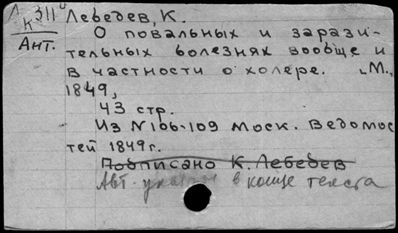 Л 311
К
Ант.
Лебедев, К.
О повальных и зарази-
тельных болезнях вообще и
в частности о холере. М.,
1849,
43 стр.
Из N106-109 Моск. Ведомос
тей 1849г.
Подписано К. Лебедев
Авт. указан в конце текста